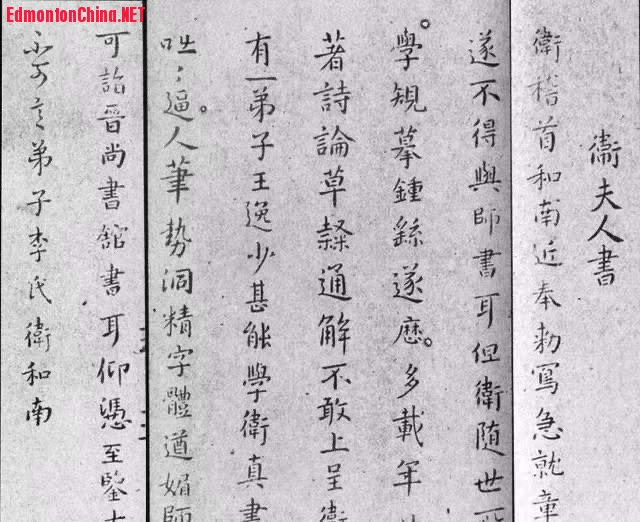 EdmontonChina.NET
衛夫人書
衛稽首和南近奉勑寫急就章
遂不得與師書耳但衛随世所
學規摹鍾繇遂歷多載年
著詩論草隸通解不敢上呈衛
有一弟子王逸少甚能學衛真書
咄〻逼人筆勢洞精字體遒媚師
可詣晋尚書館書耳仰憑至鑒大
不可言弟子李氏衛和南